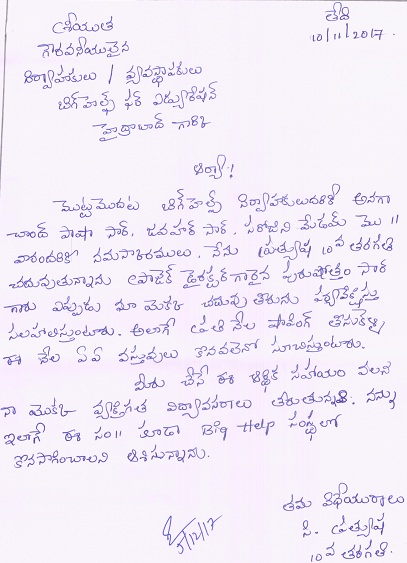 తేది
10/11/2017.
శ్రీయుత
గౌరవనీయులైన
నిర్వాహకులు / వ్యవస్థాపకులు
బిగ్‌హెల్ప్ ఫర్ ఎడ్యుకేషన్
హైద్రాబాద్ గారికి
ఆర్యా!
మొట్టమొదట బిగ్‌హెల్ప్ నిర్వాహకులందరికి అనగా
చాంద్ పాషా సార్, జవహర్ సార్, సరోజిని మేడమ్ మొ॥
వారందరికి నమస్కారములు. నేను ప్రత్యుష 10వ తరగతి
చదువుతున్నాను ప్రాజెక్ట్ డైరక్టర్ గారైన పురుషోత్తం సార్
గారు ఎప్పుడు మా యొక్క చదువు తీరును పర్యవేక్షిస్తు
సలహాలిస్తుంటారు. అలాగే ప్రతి నెల షాపింగ్ తీసుకెళ్ళి
ఈ నెల ఏ ఏ వస్తువులు కొనవలెనో సూచిస్తుంటారు.
మీరు చేసే ఈ ఆర్థిక సహాయం వలన
నా యొక్క వ్యక్తిగత విద్యావసరాలు తీరుతున్నవి. నన్ను
ఇలాగే ఈ సం॥ కూడా Big Help సంస్థలో
కొనసాగించాలని ఆశిస్తున్నాను.
5/12/17
తమ విధేయురాలు
సి. ప్రత్యుష
10వ తరగతి.